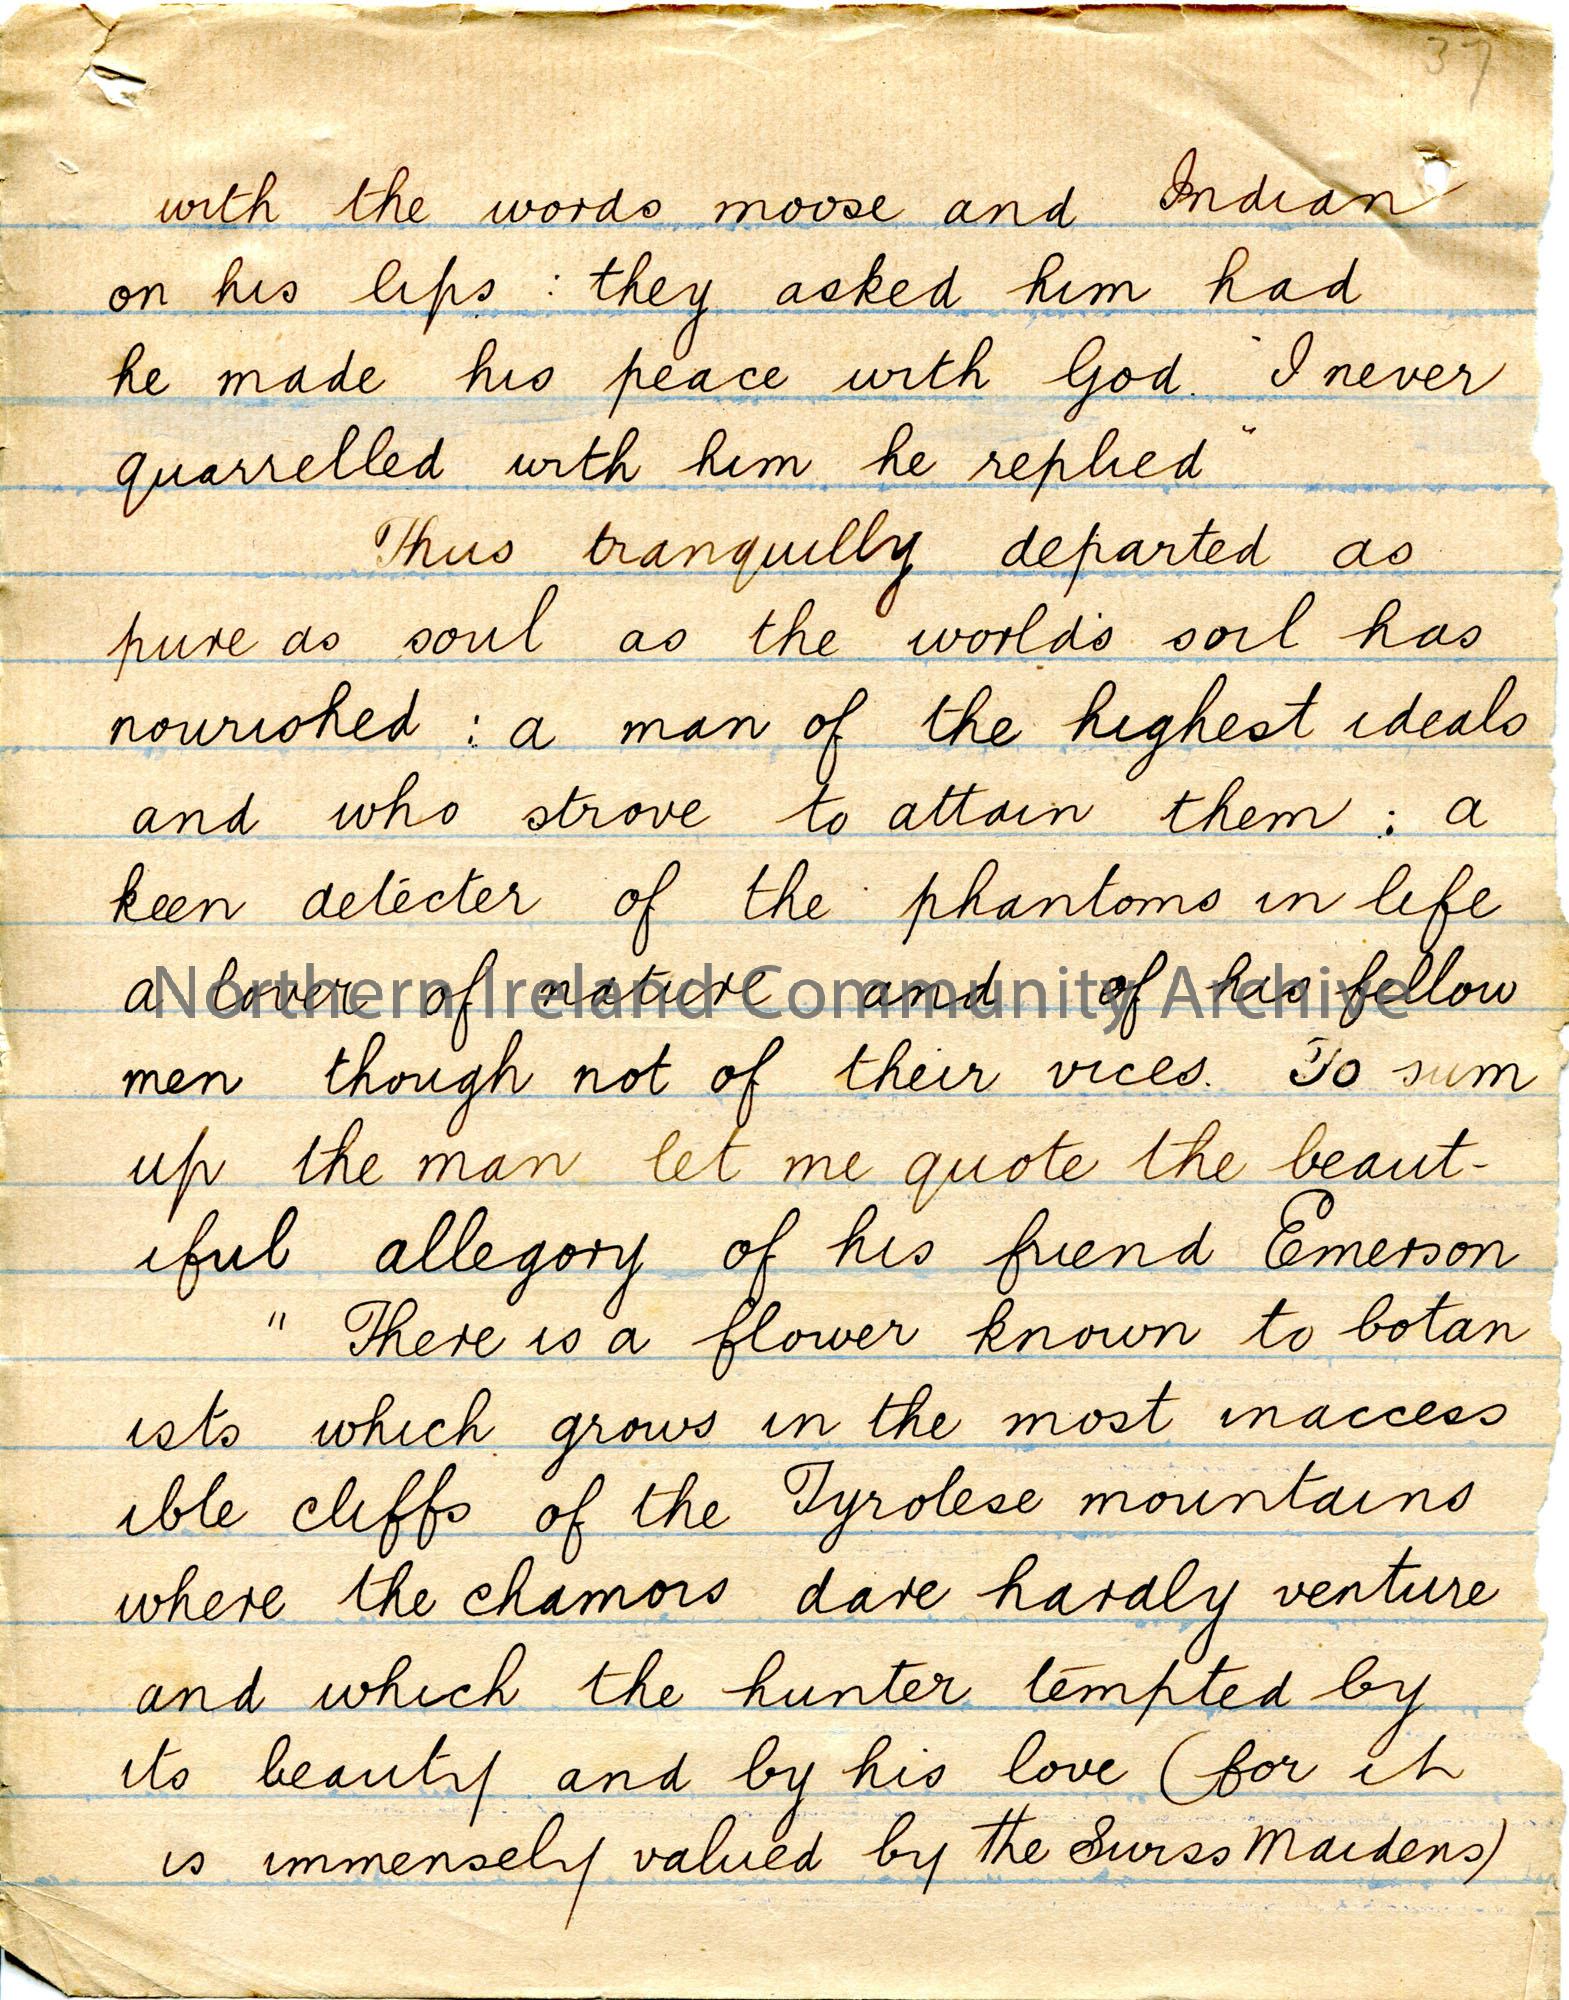 37
with the words moose and Indian
on his lips : they asked him had
he made his peace with God. "I never
quarrelled with him he replied"
Thus tranquilly departed as
pure as soul as the world's soil has
nourished : a man of the highest ideals
and who strove to attain them : a
keen detecter of the phantoms in life
a lover of nature and of his fellow
Northern Ireland Community Archive
men though not of their vices. To sum
up the man let me quote the beaut-
iful allegory of his friend Emerson
" There is a flower known to botan
ists which grows in the most inaccess
ible cliffs of the Tyrolese mountains
where the chamois dare hardly venture
and which the hunter tempted by
its beauty and by his love (for it
is immensely valued by the Swiss Maidens)